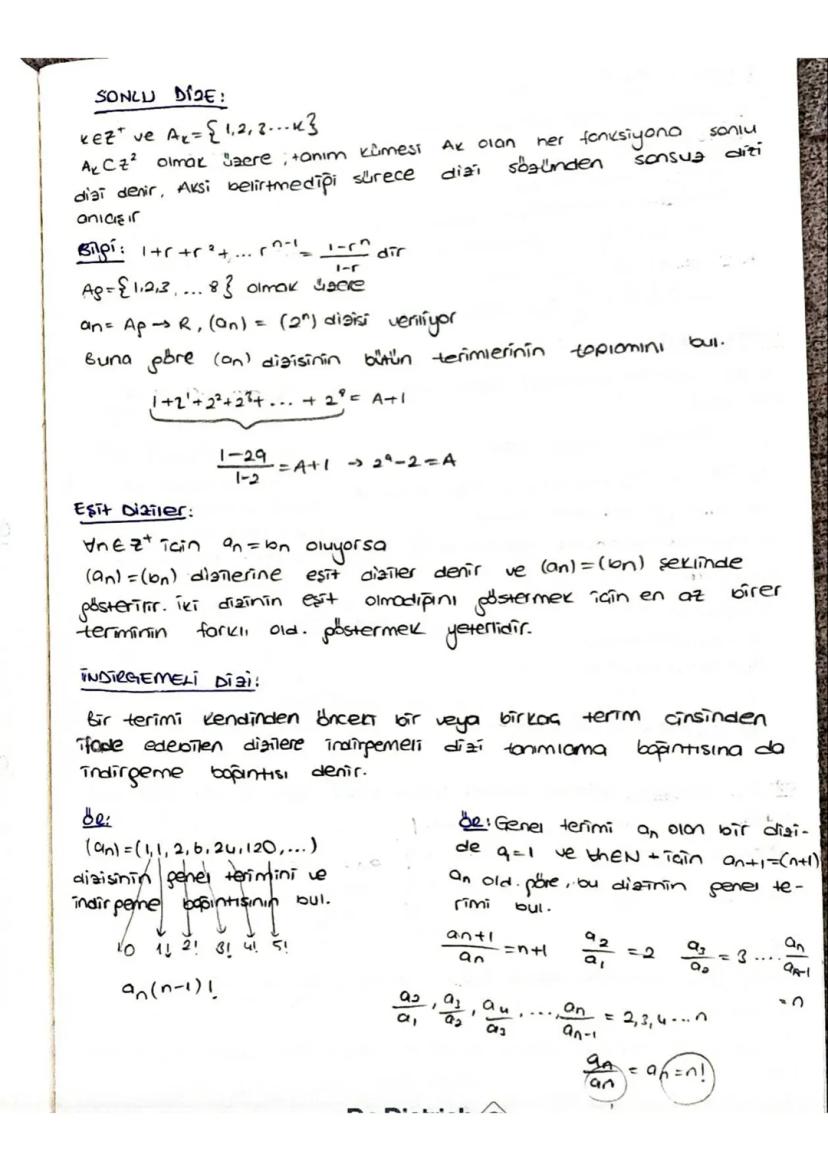 SONLU DİZE:
k∈Z⁺ ve Aₖ={1,2,3...k}
Aₖ⊂Z² olmak üzere, tanım kümesi Aₖ olan her fonksiyona sonlu
dizi denir, Aksi belirtmediği sürece dizi sözünden sonsuz dizi
anlaşır
Bilgi: 1+r+r²+... rⁿ⁻¹ = (1-rⁿ)/(1-r) dir
A₈={1,2,3,...8} olmak üzere
an= A₈→R, (an) = (2ⁿ) dizisi veriliyor
Buna göre (an) dizisinin bütün terimlerinin toplamını bul.
1+2¹+2²+2³+...+2⁸ = A+1
(1-29)/(1-2) = A+1 → 2⁹-2=A
Eşit Diziler:
∀n∈Z⁺ için an=bn oluyorsa
(an)=(bn) dizilerine eşit diziler denir ve (an)=(bn) şeklinde
gösterilir. iki dizinin eşit olmadığını göstermek için en az birer
teriminin farklı old. göstermek yeterlidir.
İNDİRGEMELİ DİZİ:
Bir terimi kendinden önceki bir veya birkaç terim cinsinden
ifade edebilen dizilere indirgemeli dizi tanımlama bağıntısına da
indirgeme bağıntısı denir.
Ör:
(an)=(1,1,2,6,24,120,...)
dizisinin genel terimini ve
indirgeme bağıntısının bul.
1! 2! 3! 4! 5!
an(n-1)!
Ör: Genel terimi an olan bir dizi-
de a=1 ve ∀n∈N+ için an+1=(n+1)
an old. göre, bu dizinin genel te-
rimi bul.
an+1/an = n+1 a₂/a₁ = 2 a₃/a₂ = 3 .... an/an-1
= n
a₂/a₁, a₃/a₂, a₄/a₃, ..., an/an-1 = 2,3,4...n
an/an = an = n!